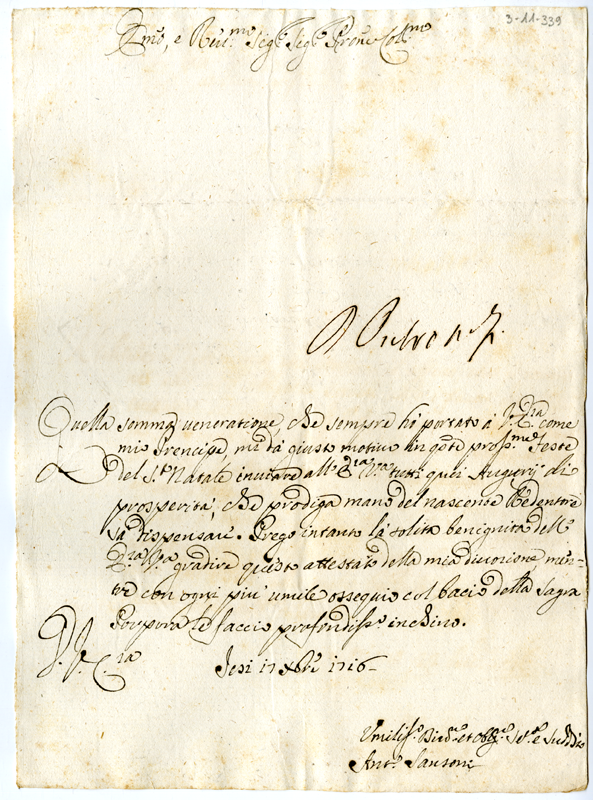 3-11-339
Em.o, e Reu.mo Sig.r Sig.r Prone Coll.mo
Quella somma veneratione, che sempre hò portato à V.E.za come
mio Prencipe, mi dà giusto motivo in q.ste pross.me Feste
del S.to Natale inuiare all' E.za V.ra tutti quei Augurij di
prosperità, che prodiga mano del nascente Redentore
sà dispensare. Prego intanto la solita benignità dell'
E.za V.ra gradire questo attestato della mia diuozione men-
tre con ogni più umile ossequio col bacio della Sagra
Porpora le faccio profondiss.o inchino.
D. V. E.za
Jesi 17 Xbre 1716
Umiliss.o Diu.mo et obblig.mo Ser.re e Suddito
Ant.o Sansone